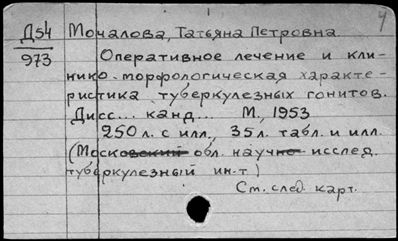 4
Д54 Мочалова, Татьяна Петровна
973 Оперативное лечение и кли-
нико-морфологическая характе-
ристика туберкулезных гонитов.
Дисс... канд... М., 1953
250 л. с илл., 35 л. табл. и илл.
(Московский обл. научно-исслед.
туберкулезный ин-т)
См. след. карт.